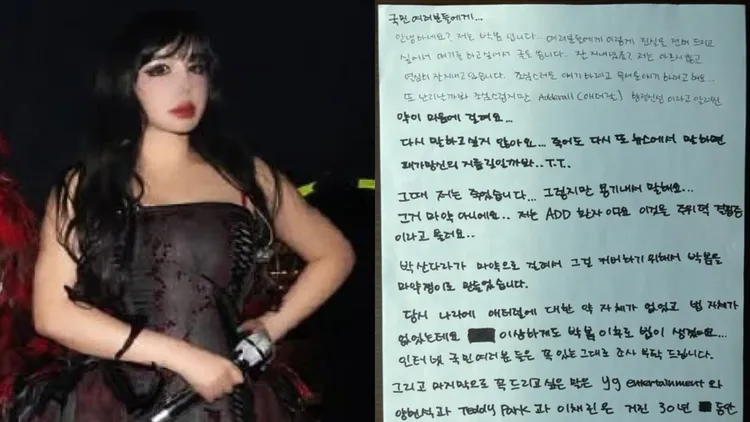 국민 여러분들에게...
안녕하세요? 저는 박봄 입니다... 여러분들에게 이렇게 진실을 전해 드리고
싶어서 얘기를 하고싶어서 글도 씁니다. 잘 지내셨죠? 저는 아프지않고
열심히 잘지내고 있습니다. 조심스러운 얘기하려고 무서운얘기 하려고 해요..
또 난리난까봐 조심스럽지만 Adderall (애더럴)
약이 마음에 걸려요...
다시 말하고싶지 않아요... 죽어도 다시 또 뉴스에서 말하면
패가망신의 지름길일까봐..T.T.
그때 저는 죽었습니다... 그렇지만 용기내서 말해요...
그거 마약 아니에요.. 저는 ADD 환자 이고요 이것을 주위력 결핍증
이라고 불러요..
박산다라가 마약으로 걸려서 그걸 커버하기 위해서 박봄을
마약쟁이로 만들었습니다.
당시 나라에 애더럴에 대한 약 자체가 없었고 법 자체가
없었는데요 이상하게도 박봄 이후로 법이 생겼어요...
인터넷 국민여러분 들은 꼭 있는그대로 조사 부탁 드립니다.
그리고 마지막으로 꼭 드리고 싶은 말은 yg entertainment 와
양현석과 Teddy Park 과 이채린 은 거진 30년 동안